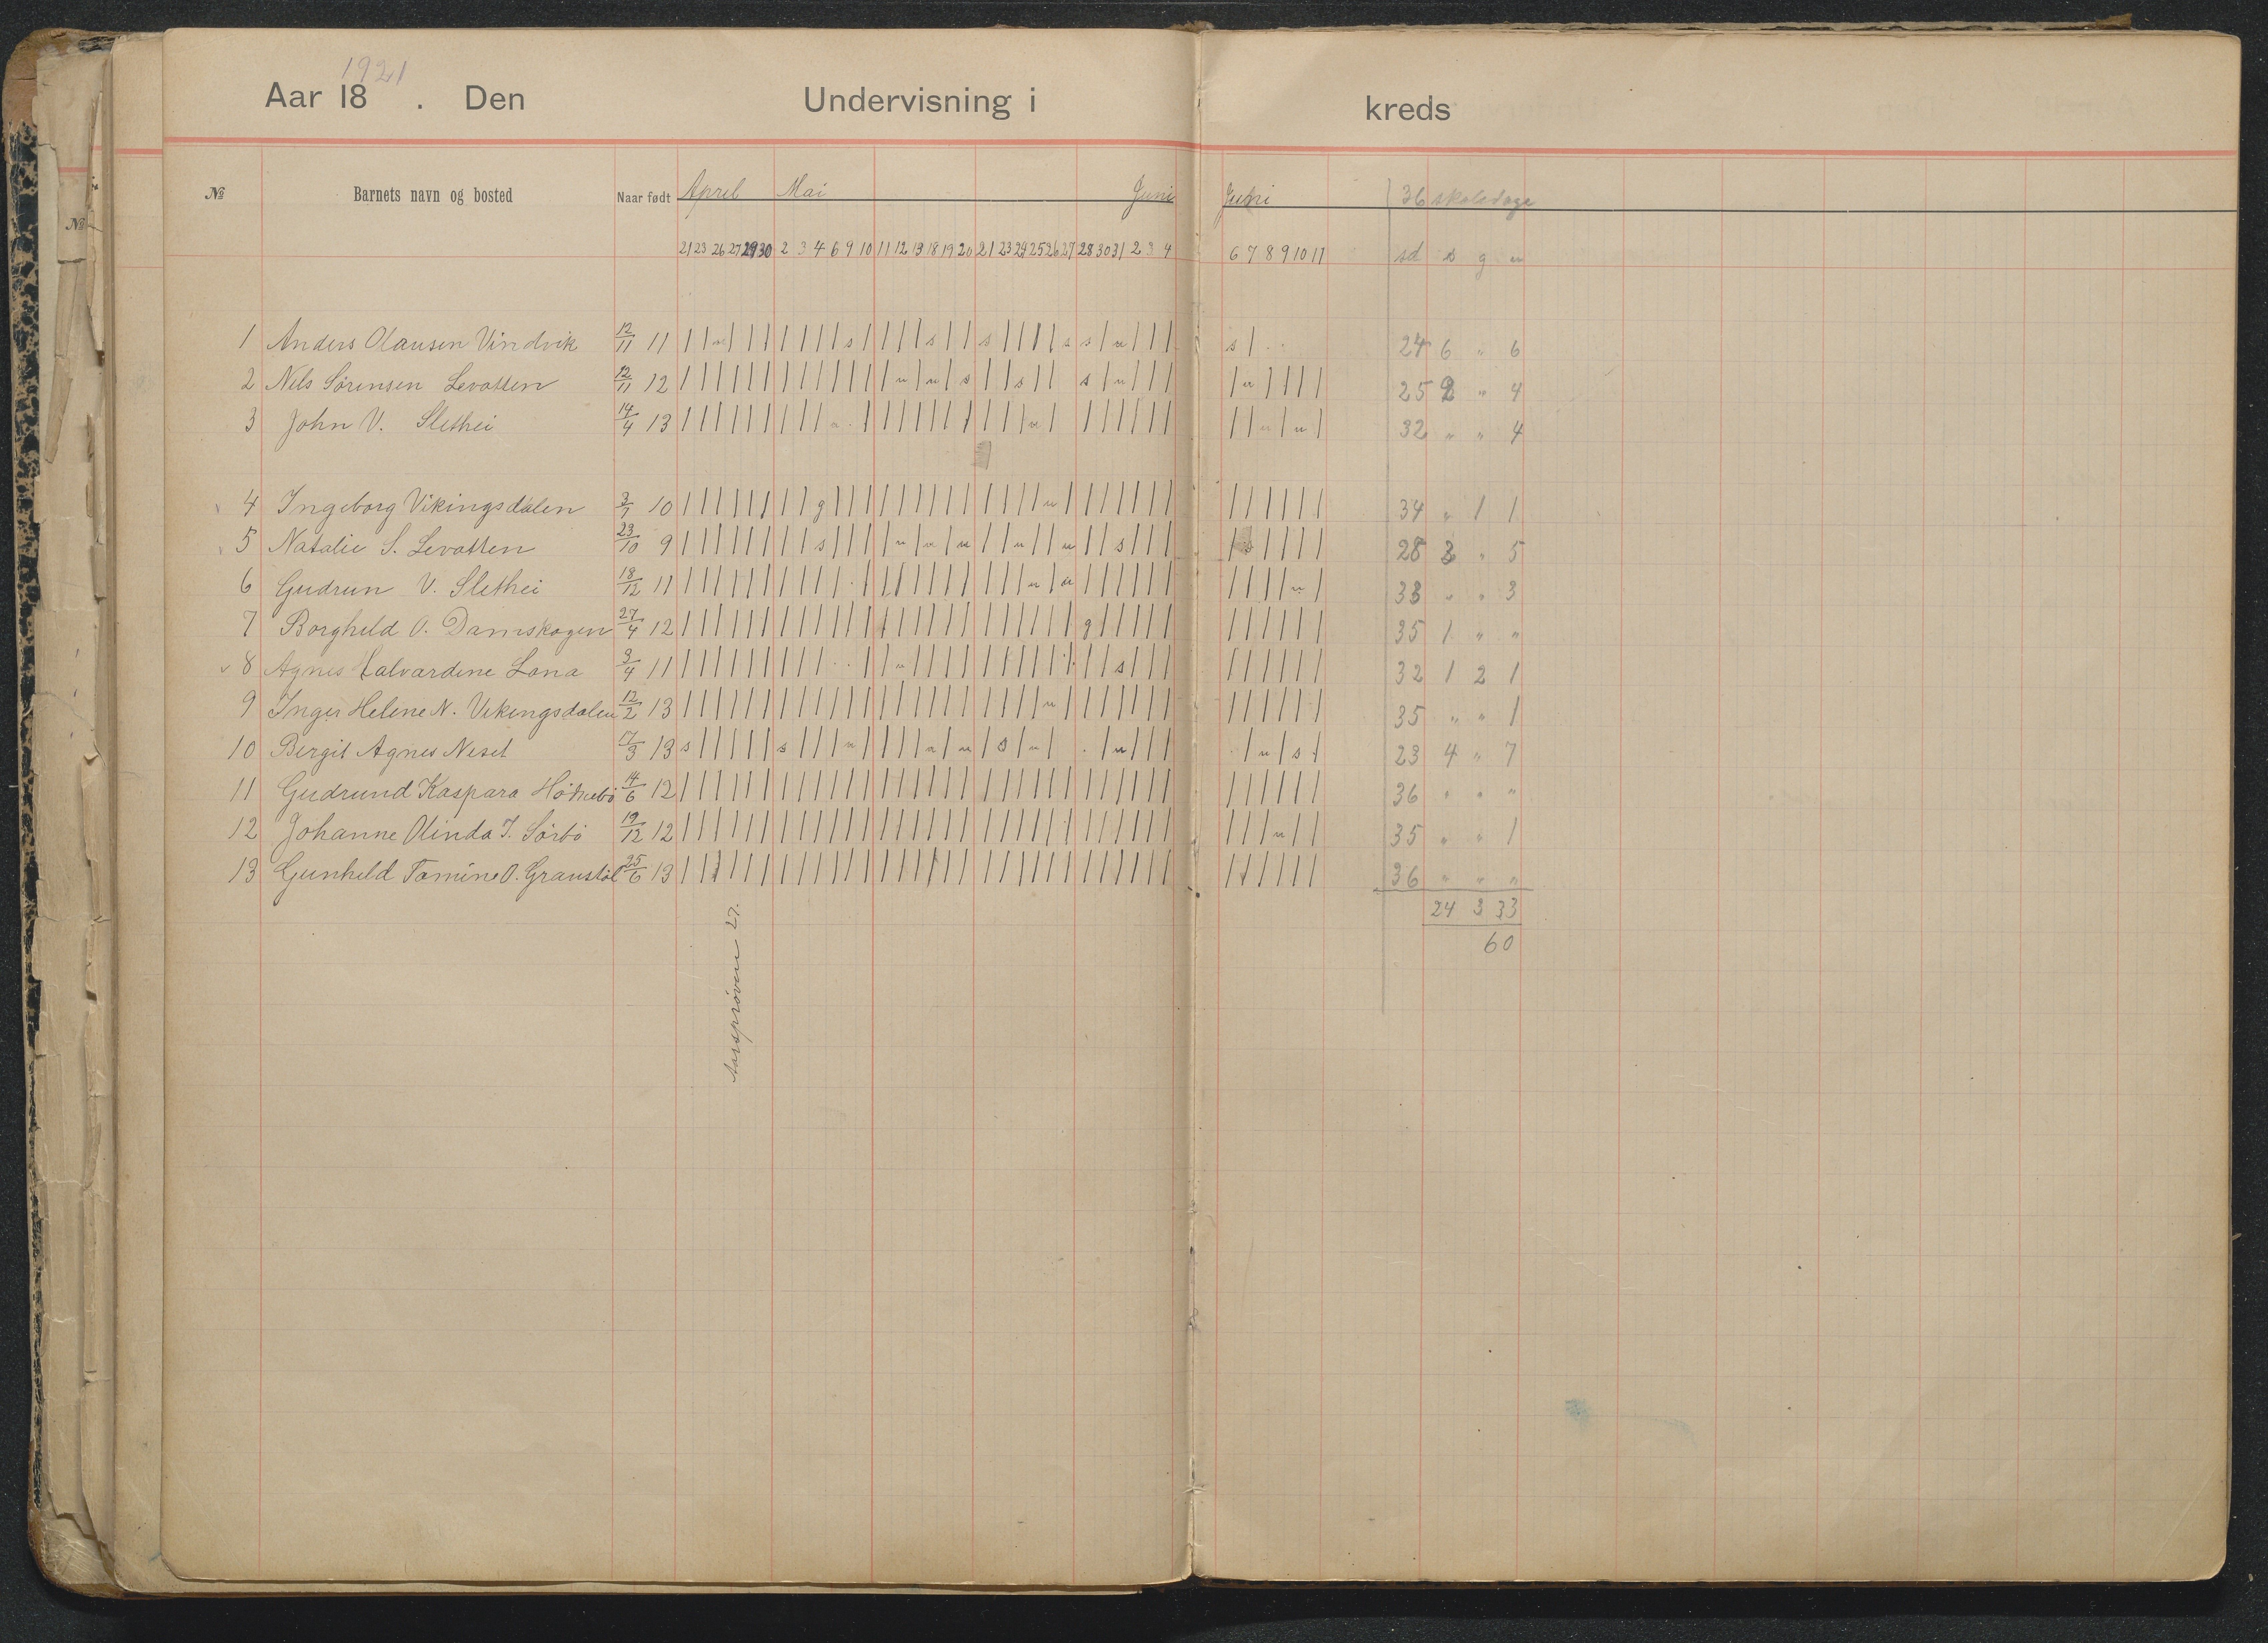 1921
Aar 18 . Den Undervisning i kreds
№ Barnets navn og bosted Naar født April Mai Juni Juni 36 skoledage
№
21 23 26 27 29 30 2 3 4 6 9 10 11 12 13 18 19 20 21 23 24 25 26 27 28 30 31 2 3 4 6 7 8 9 10 11 sd s g u
1 Anders Olausen Vindvik 12/11 11 | | u | | | | | | | s | | | | s | | s | | | | s s | u | | | s | . . 24 6 " 6
2 Nils Sörensen Levatten 12/11 12 | | | | | | | | | | | | | u | u | s | | s | | s | u | | | | u | | | | 25 2 " 4
3 John V. Slethei 14/4 13 | | | | | | | | | u . | | | | | | | | | | u | | | | | | | | | u | u | 32 " " 4
4 Ingeborg Vikingsdalen 3/1 10 | | | | | | | | g | | | | | | | | | | | | | u | | | | | | | | | | | | | 34 " 1 1
5 Natalie S. Levatten 23/10 9 | | | | | | | | s | | | | u | u | u | | u | | u | | s | | | | s | | | | 28 3 " 5
6 Gudrun V. Slethei 18/12 11 | | | | | | | | | | . | | | | | | | | | | u | u | | | | | | | | | | u | 33 " " 3
7 Borghild O. Damskogen 27/4 12 | | | | | | | | | | | | | | | | | | | | | | | | g | | | | | | | | | | | 35 1 " "
8 Agnes Halvardine Lona 3/4 11 | | | | | | | | | . . | | u | | | | | | | | | | | | s | | | | | | | | | 32 1 2 1
9 Inger Helene N. Vikingsdalen 12/2 13 | | | | | | | | | | | | | | | | | | | | | | u | | | | | | | | | | | | | 35 " " 1
10 Bergit Agnes Neset 17/3 13 s | | | | | s | | | u | | | | u | u | s | u | . | u | | | . | u | s | 23 4 " 7
11 Gudrund Kaspara 14/6 12 | | | | | | | | | | | | | | | | | | | | | | | | | | | | | | | | | | | | 36 " " "
12 Johanne Olinda J. Sörbö 19/12 12 | | | | | | | | | | | | | | | | | | | | | | | | | | | | | | | | | u | | 35 " " 1
13 Gunhild Tomine O. Granstöl 25/6 13 | | | | | | | | | | | | | | | | | | | | | | | | | | | | | | | | | | | | 36 " " "
24 3 33
60
Aarsprøven 27.